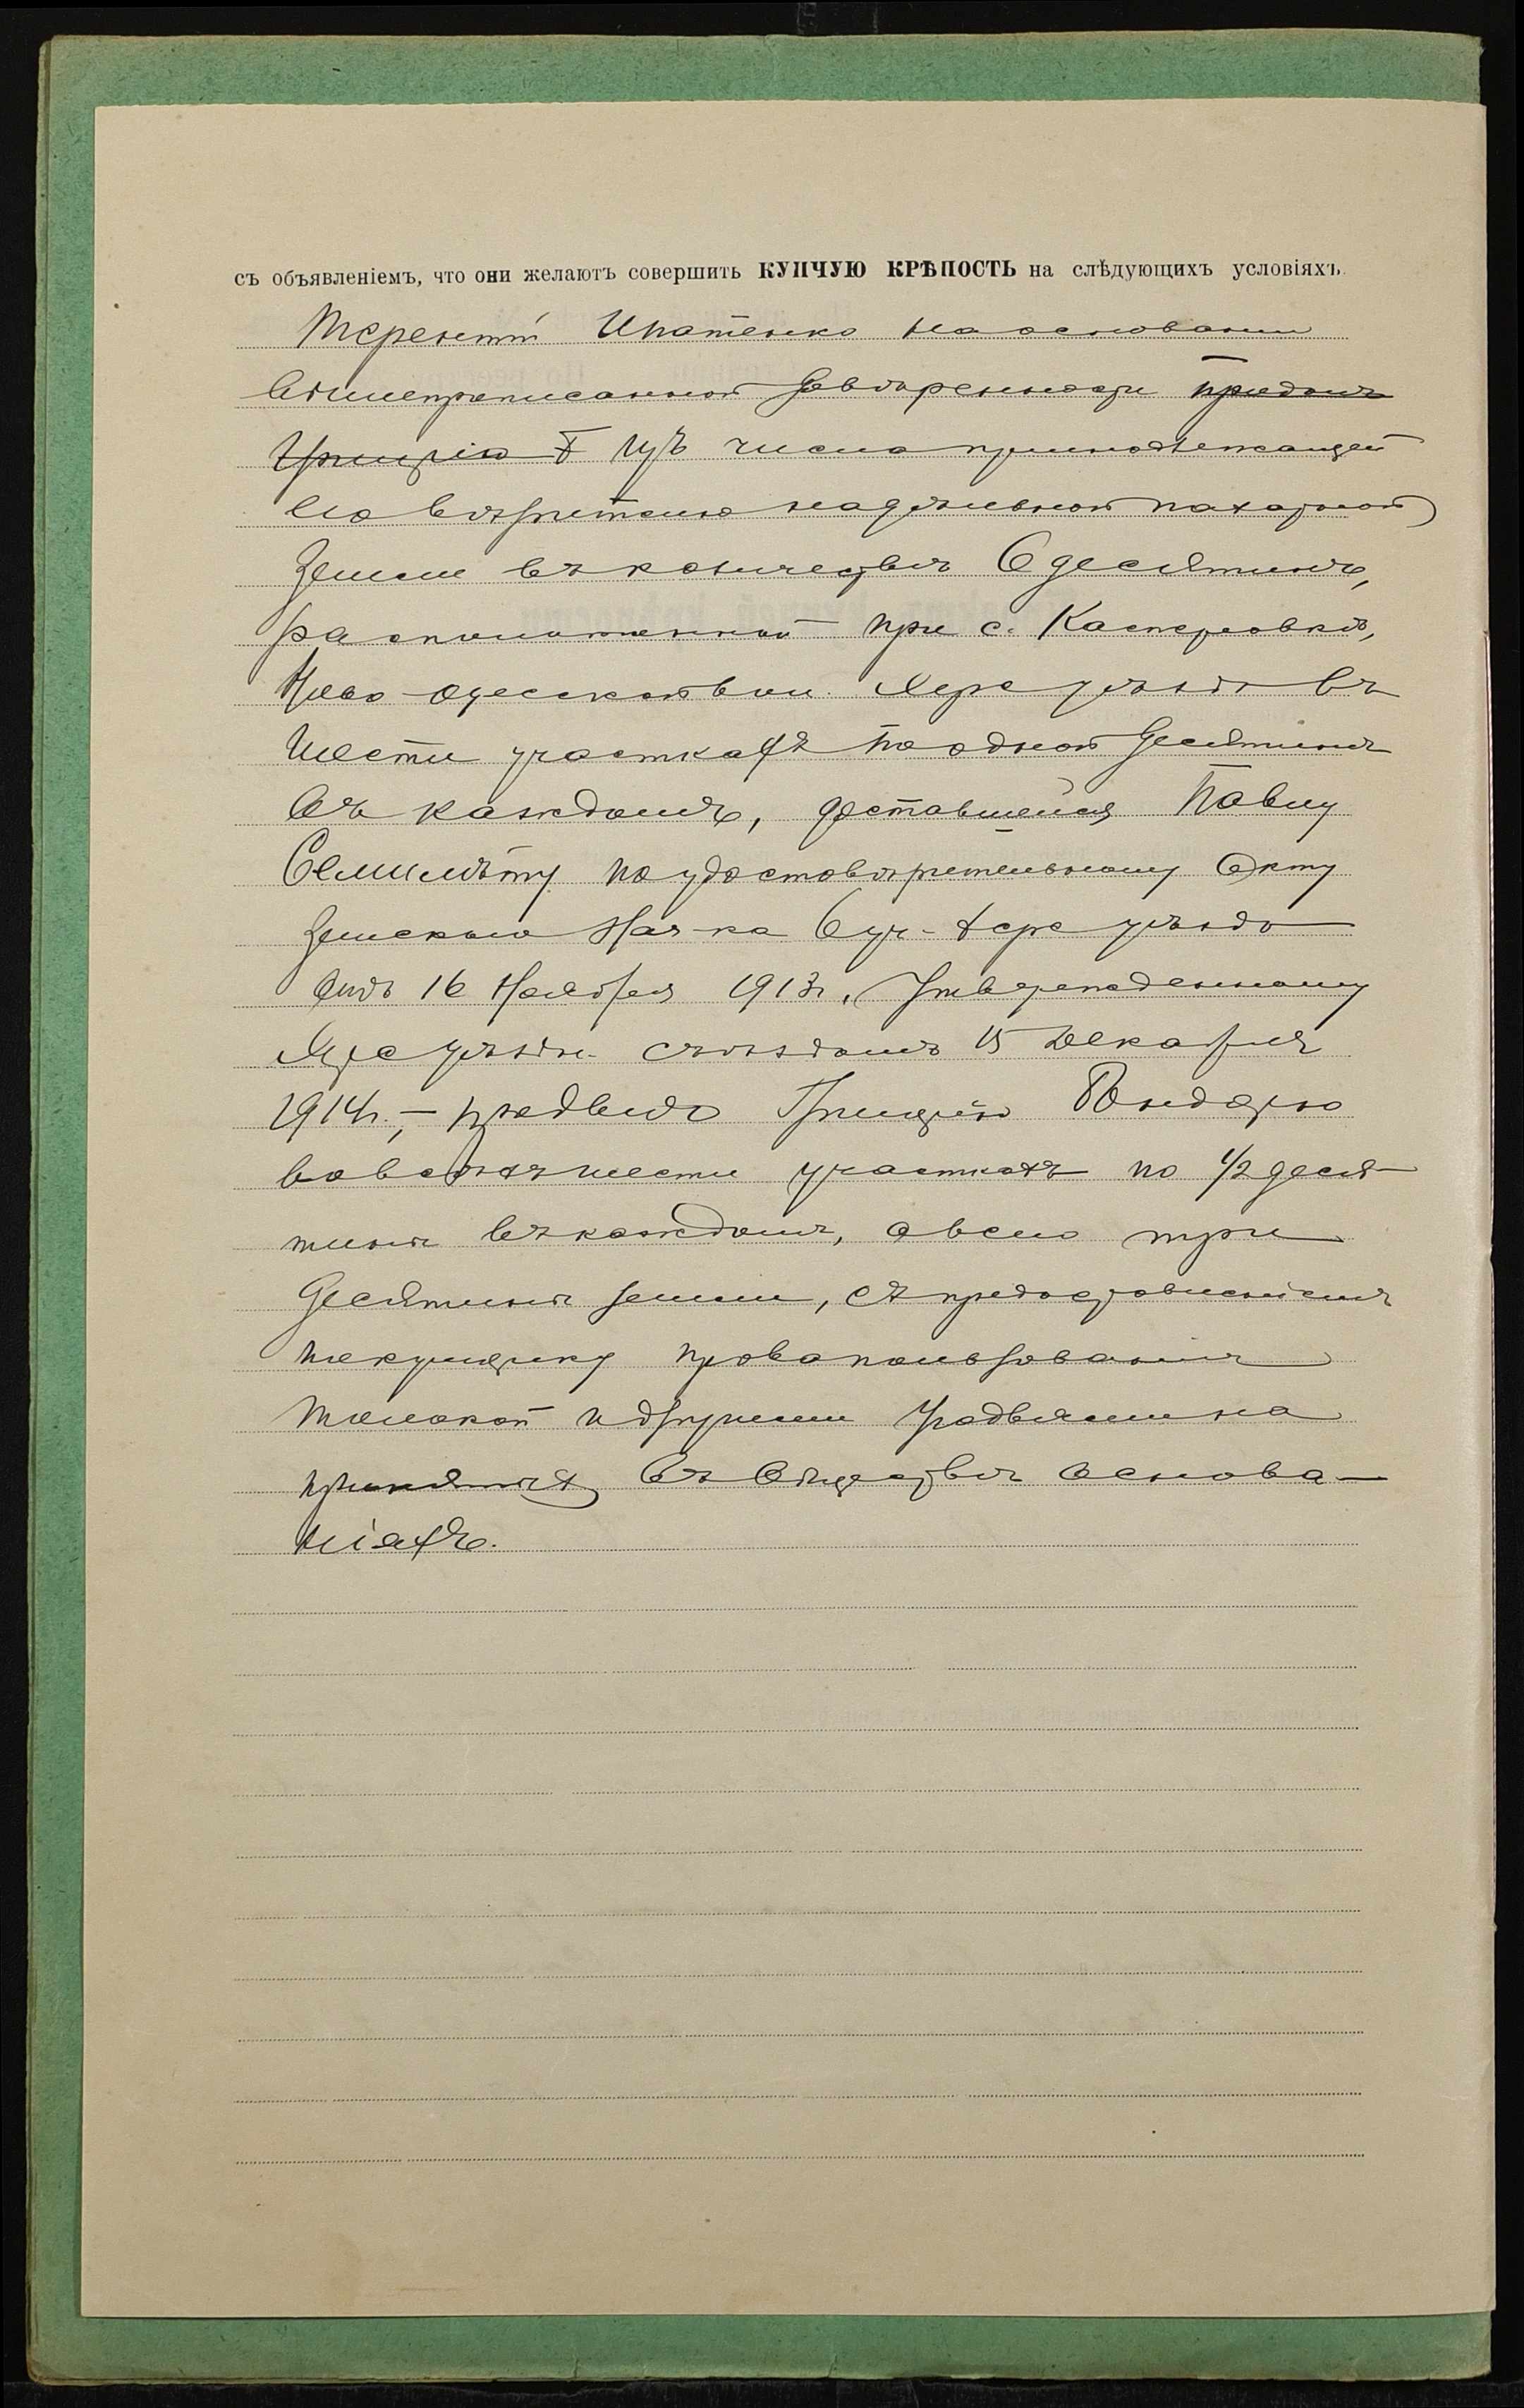 съ объявленіемъ, что они желаютъ совершить КУПЧУЮ КРѢПОСТЬ на слѣдующихъ условіяхъ.
Терентій Ипатенко на основаніи
вышепрописанной довѣренности продалъ
Григорію Б изъ числа принадлежащей
его вѣрителю надѣльной пахатной
земли въ количествѣ 6 десятинъ,
расположенной при с. Касперовкѣ,
Ново-Одесской вол. Херс уѣзда въ
шести участкахъ по одной десятинѣ
въ каждомъ, доставшейся Павлу
Семилѣту по удостовѣрительному акту
Земскаго Нач-ка 6 уч. Херс уѣзда
отъ 16 Ноября 1913 г., утвержденному
Херс уѣздн. съѣздомъ 15 Декабря
1914 г., – продалъ Григорію Бондарю
во всѣхъ шести участкахъ по 1/2 деся-
тины въ каждомъ, а всего три
десятины земли, съ предоставленіемъ
покупщику права пользованія
толокой и другими угодьями на
принятыхъ въ обществѣ основа-
ніяхъ.